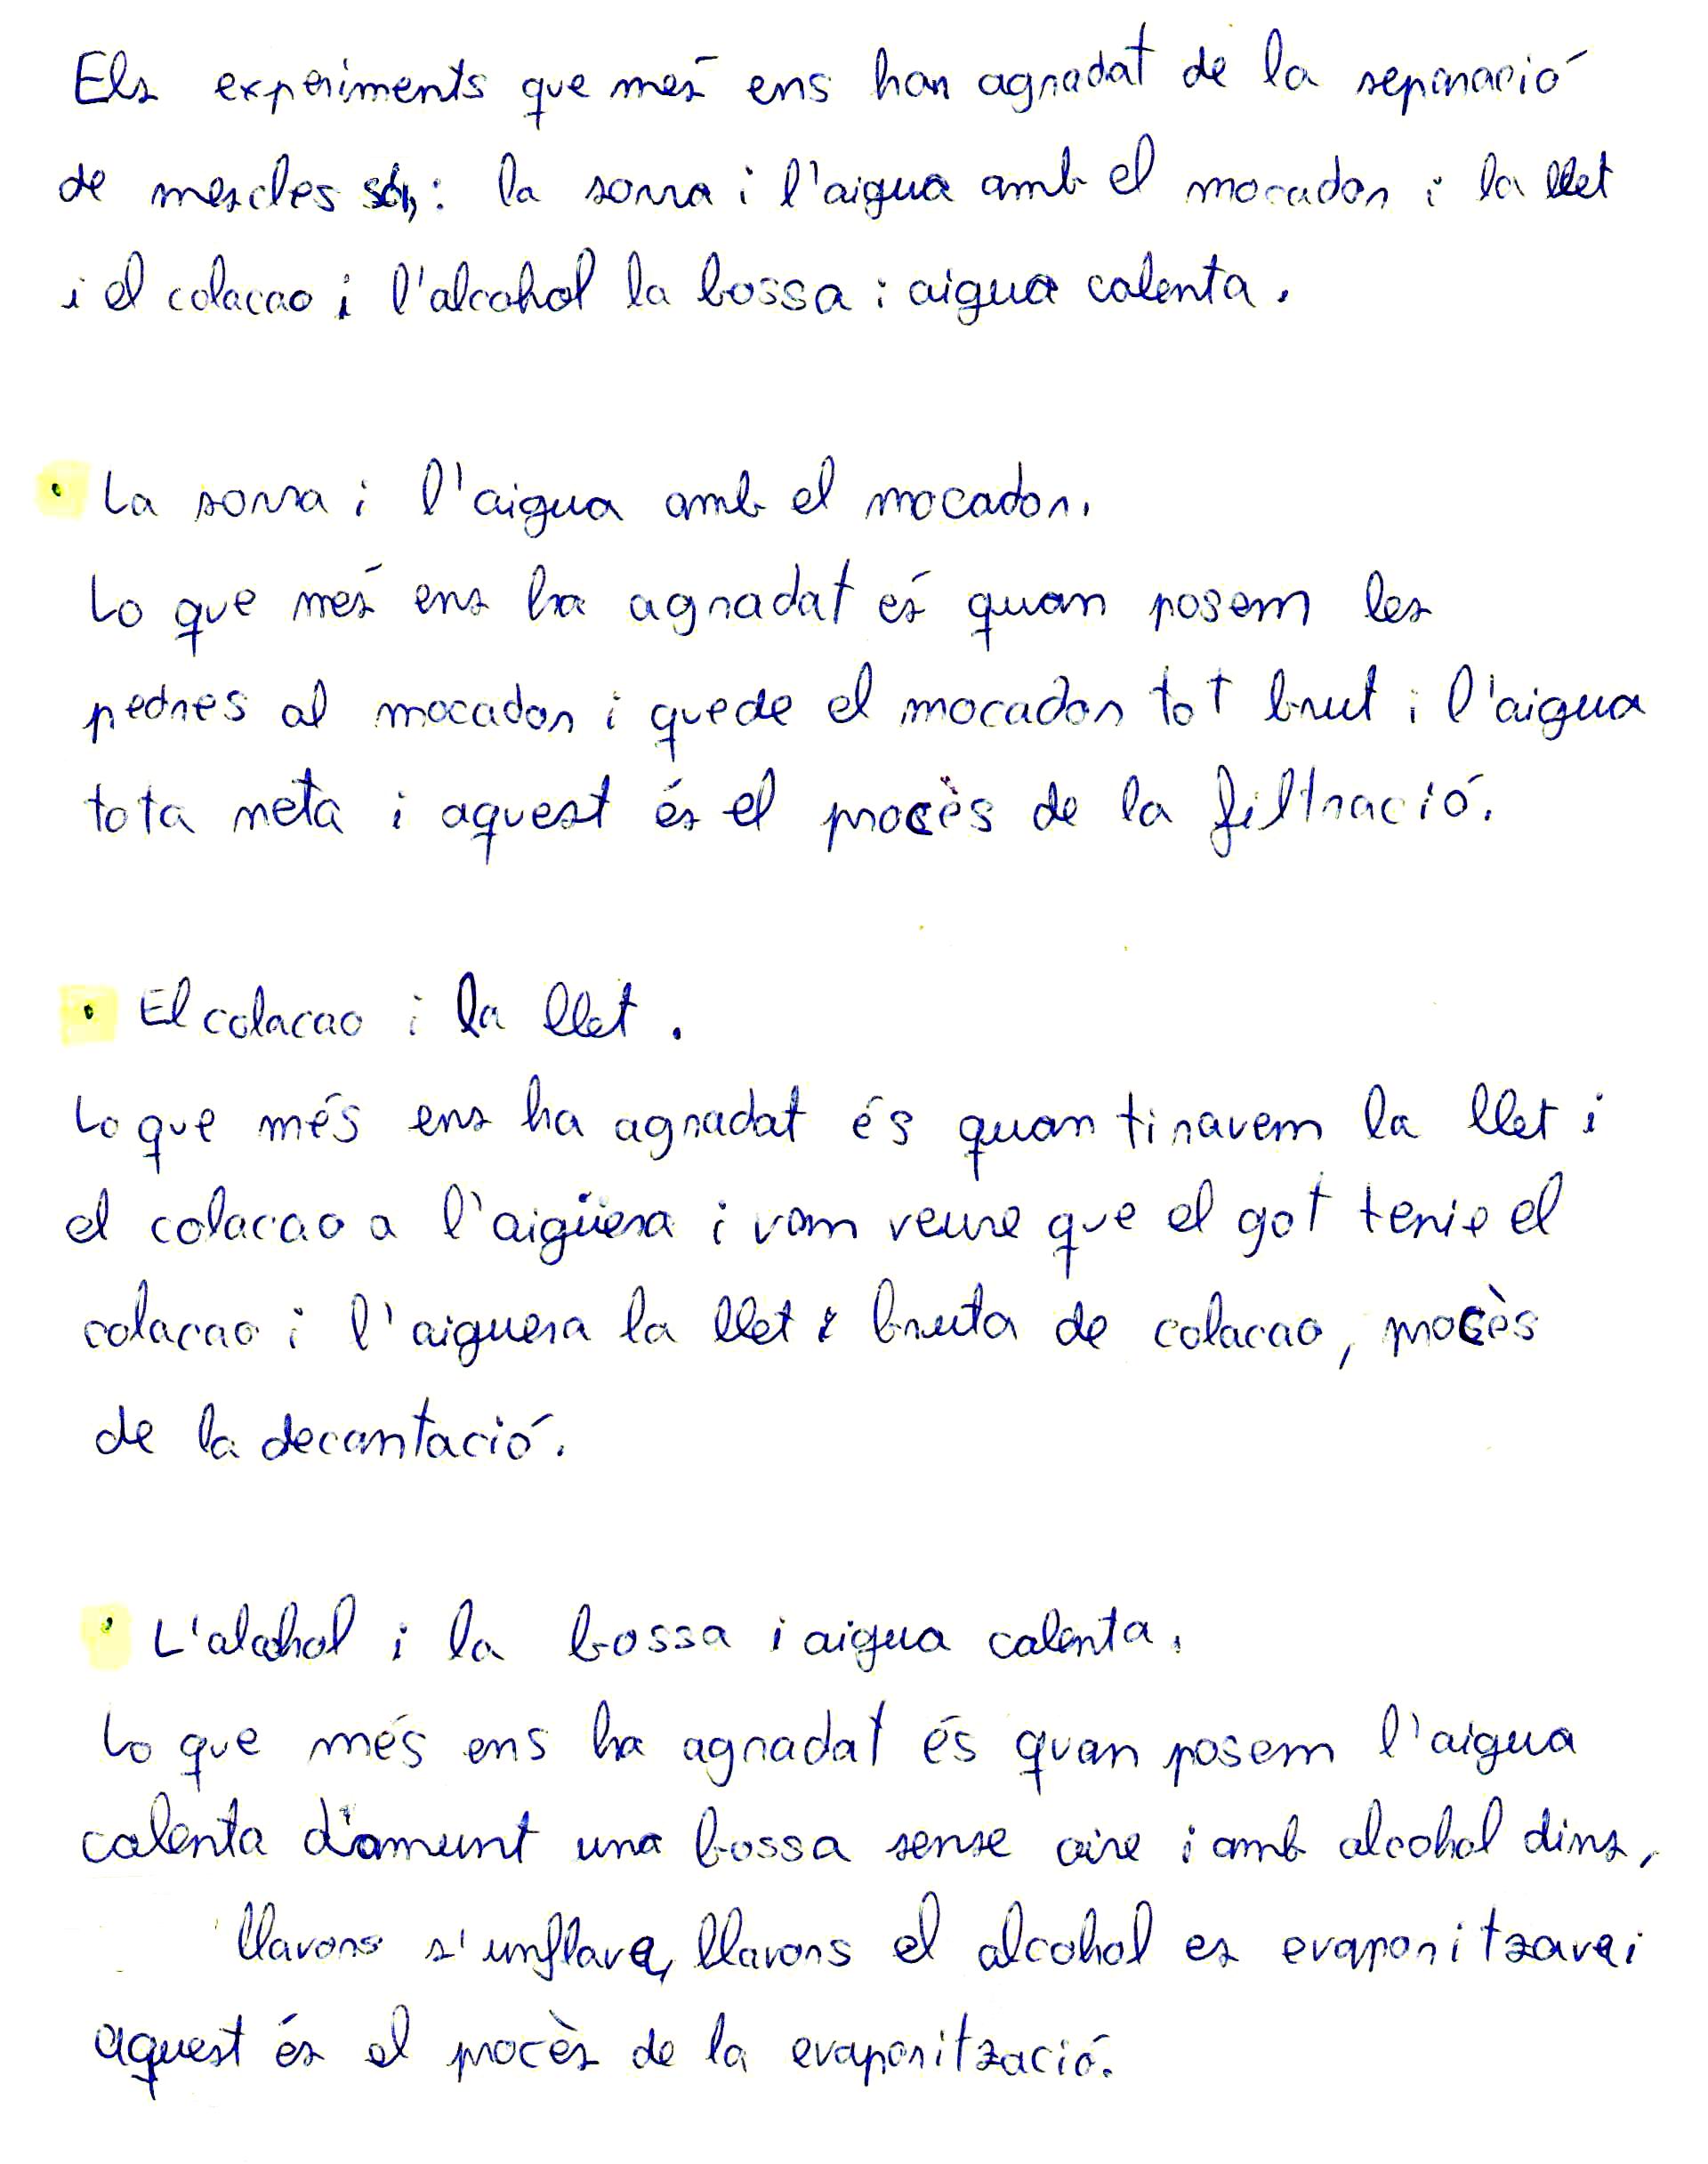 Els experiments que més ens han agradat de la separació
de mescles són: la sorra i l'aigua amb el mocador i la llet
i el colacao i l'alcohol la bossa i aigua calenta.
· La sorra i l'aigua amb el mocador.
Lo que més ens ha agradat és quan posem les
pedres al mocador i quede el mocador tot brut i l'aigua
tota neta i aquest és el procès de la filtració.
· El colacao i la llet.
Lo que més ens ha agradat és quan tiravem la llet i
el colacao a l'aigüera i vam veure que el got tenie el
colacao i l'aiguera la llet i bruta de colacao, procès
de la decantació.
· L'alcohol i la bossa i aigua calenta.
Lo que més ens ha agradat és quan posem l'aigua
calenta d'amunt una bossa sense aire i amb alcohol dins,
llavors s'unflava, llavors el alcohol es evaporitzava i
aquest és el procès de la evaporització.